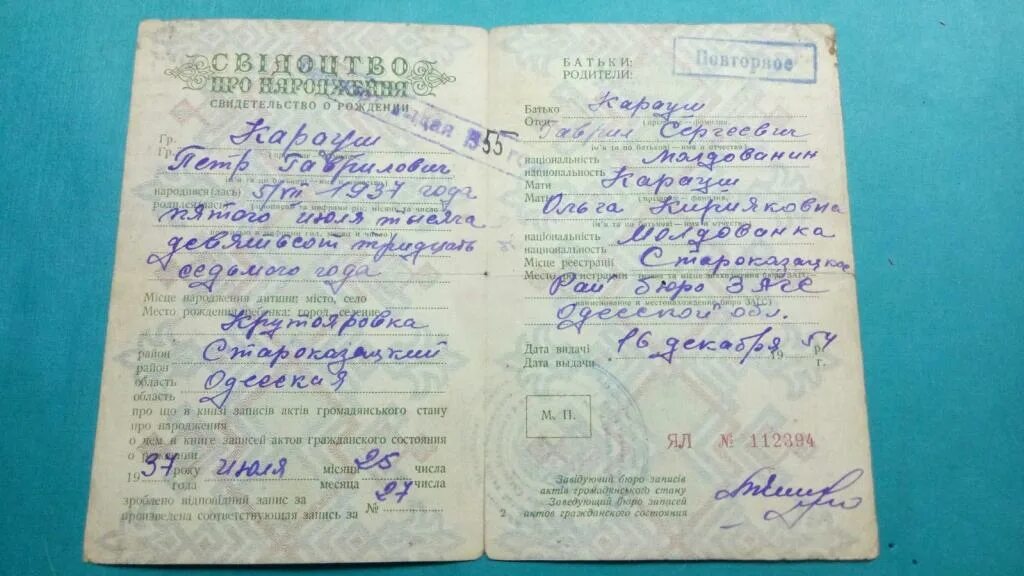 СВІДОЦТВО
ПРО НАРОДЖЕННЯ
СВИДЕТЕЛЬСТВО О РОЖДЕНИИ
55
Гр. Карауш
Гр.
Петр Гаврилович
народився (лась) 5/VII 1937 года
родился (лась)
пятого июля тысяча
девятьсот тридцать
седьмого года
Місце народження дитини: місто, село
Место рождения ребенка: город, селение
Крутояровка
район Староказацкий
район
область Одесская
область
про що в книзі записів актів громадянського стану
про народження
о чем в книге записей актов гражданского состояния
о рождении
1937 року июля місяця 25 числа
года месяца числа
зроблено відповідний запис за № 27
произведена соответствующая запись за
БАТЬКИ:
РОДИТЕЛИ:
Повторное
Батько Карауш
Отец (прізвище — фамилия,
Гаврил Сергеевич
ім'я та по батькові — имя и отчество)
національність Молдованин
национальность
Мати Карауш
Мать (прізвище — фамилия,
Ольга Кирияковна
ім'я та по батькові — имя и отчество)
національність Молдованка
национальность
Місце реєстрації Староказацкое
Место регистрации (назва та місце знаходження бюро ЗАГС)
Рай бюро ЗАГС
наименование и местонахождение бюро ЗАГС)
Одесской обл.
Дата видачі 16 декабря 1954 р.
Дата выдачи г.
М. П.
ЯЛ № 112394
Завідуючий бюро записів
актів громадянського стану
Заведующий бюро записей
актов гражданского состояния
2